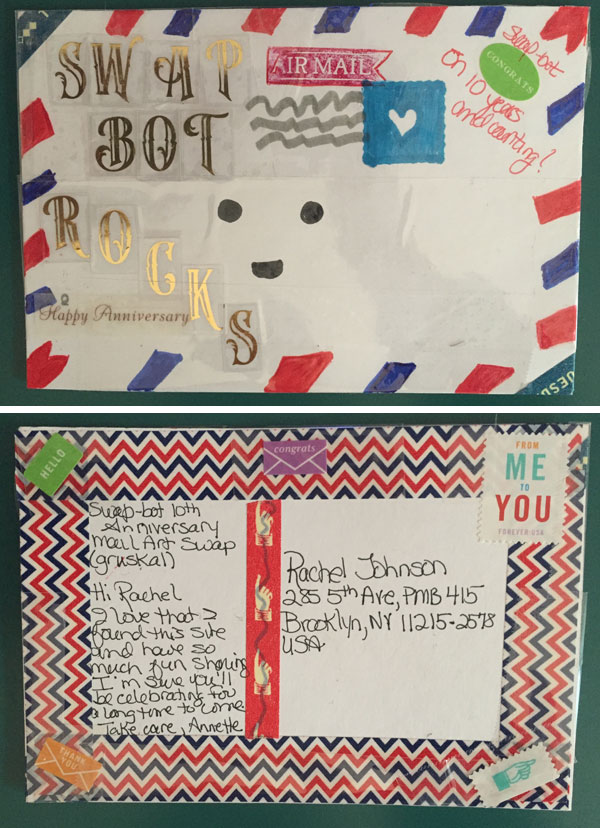 SWAP
BOT
ROCKS
Happy Anniversary
AIR MAIL
CONGRATS
Swap-bot
on 10 years
and counting!
HELLO
congrats
FROM
ME
TO
YOU
FOREVER USA
Swap-bot 10th
Anniversary
Mail Art Swap
(gruskal)
Hi Rachel
I love that I
found this site
and have so
much fun sharing
I'm sure you'll
be celebrating for
a long time to come
Take care, Annette
Rachel Johnson
285 5th Ave, PMB 415
Brooklyn, NY 11215-2578
USA
THANK
YOU